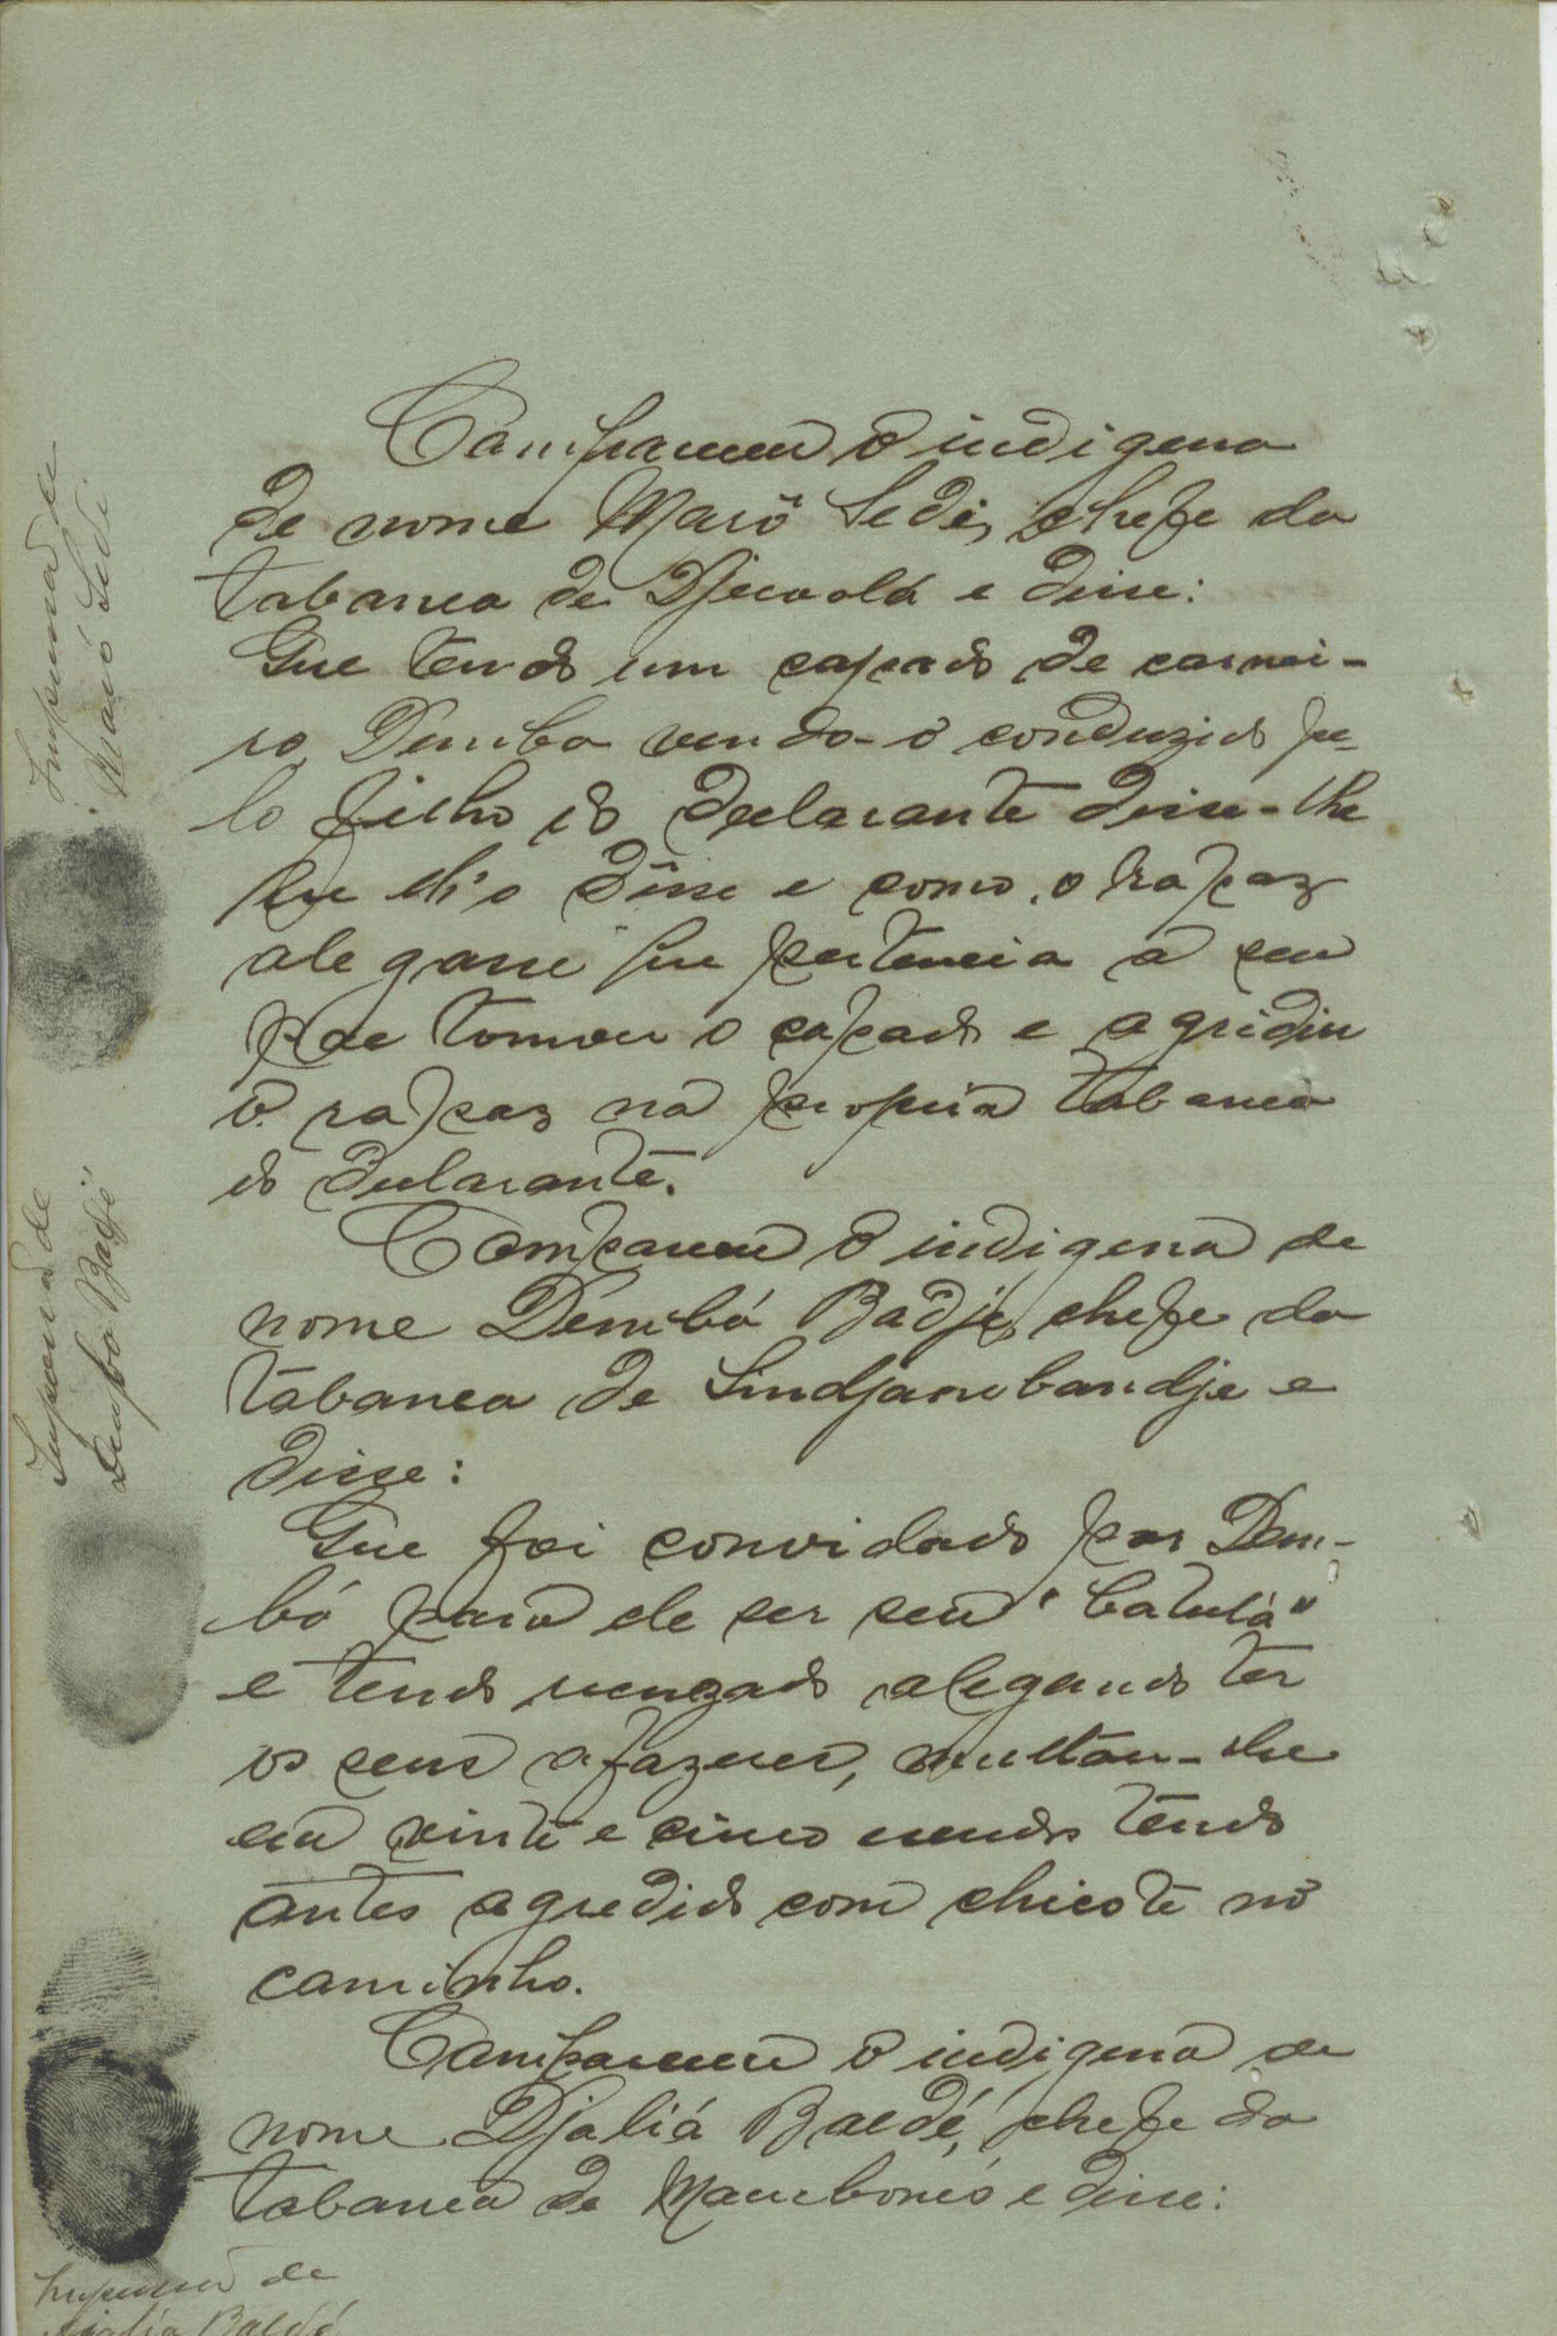 Compareceu o indigena
de nome Maró Sedi, chefe da
tabanca de e disse:
Que tendo um capado de carnei-
ro, Demba vendo-o conduzido pe-
lo filho do declarante disse-lhe
que lh'o désse e como o rapaz
alegasse que pertencia a seu
pae tomou o capado e agridiu
o rapaz na propria tabanca
do declarante.
Compareceu o indigena de
nome Dembó Badje, chefe da
tabanca de Sindjambandje e
disse:
Que foi convidado por Dem-
bó para ele ser seu "Batulá"
e tendo recuzado alegando ter
os seus afazeres, multou-lhe
em vinte e cinco escudos tendo
antes agredido com chicote no
caminho.
Compareceu o indigena de
nome Djaliá Baldé, chefe da
tabanca de Mamboncó e disse:
Impressa de
Maró Sedi
Impressa de
Dembo Badjé
Impressa de
Djaliá Baldé